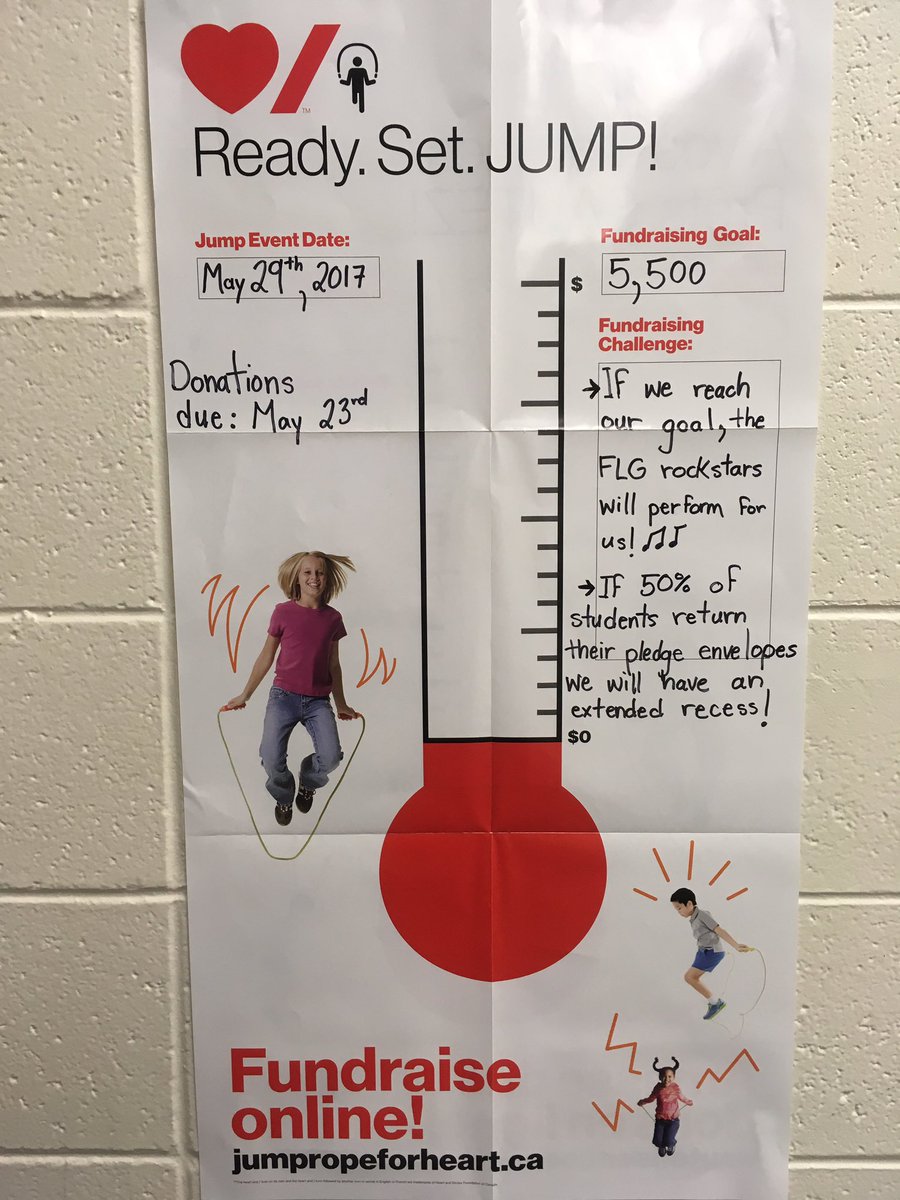 TM
Ready. Set. JUMP!
Jump Event Date:
May 29th, 2017
Donations
due: May 23rd
Fundraising Goal:
$ 5,500
Fundraising
Challenge:
→ If we reach
our goal, the
FLG rockstars
will perform for
us! ♫♫
→ If 50% of
students return
their pledge envelopes
we will have an
extended recess!
$0
Fundraise
online!
jumpropeforheart.ca